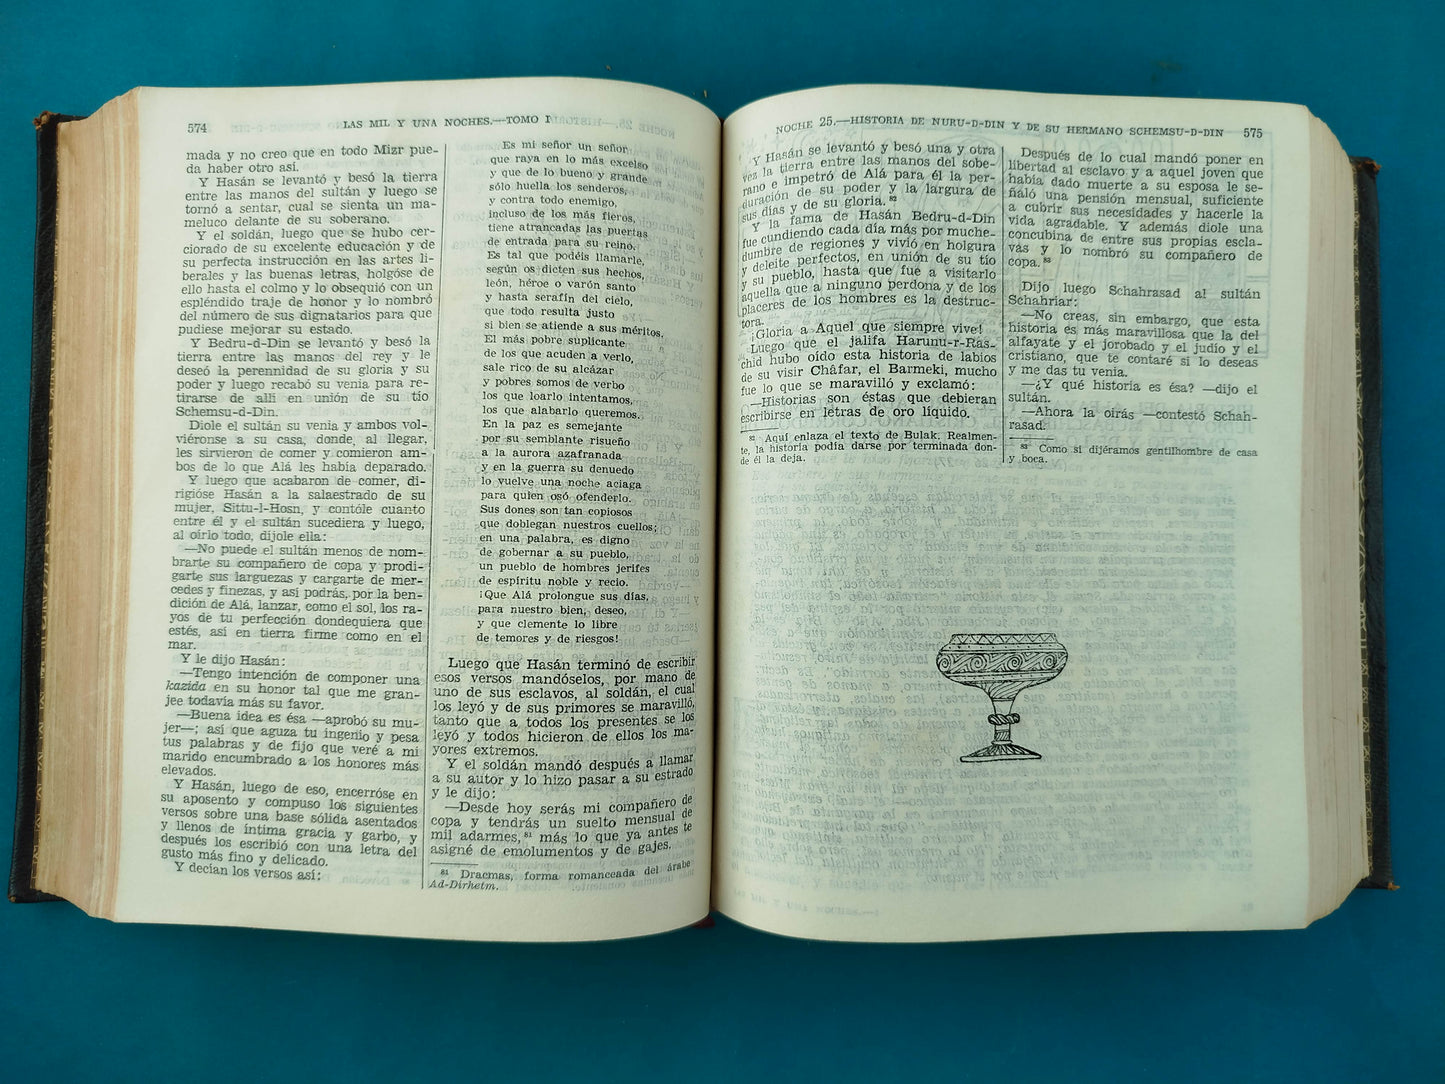 574
LAS MIL Y UNA NOCHES.—TOMO I
mada y no creo que en todo Mizr pue-
da haber otro así.
Y Hasán se levantó y besó la tierra
entre las manos del sultán y luego se
tornó a sentar, cual se sienta un ma-
meluco delante de su soberano.
Y el soldán, luego que se hubo cer-
ciorado de su excelente educación y de
su perfecta instrucción en las artes li-
berales y las buenas letras, holgóse de
ello hasta el colmo y lo obsequió con un
espléndido traje de honor y lo nombró
del número de sus dignatarios para que
pudiese mejorar su estado.
Y Bedru-d-Din se levantó y besó la
tierra entre las manos del rey y le
deseó la perennidad de su gloria y su
poder y luego recabó su venia para re-
tirarse de allí en unión de su tío
Schemsu-d-Din.
Diole el sultán su venia y ambos vol-
viéronse a su casa, donde, al llegar,
les sirvieron de comer y comieron am-
bos de lo que Alá les había deparado.
Y luego que acabaron de comer, di-
rigióse Hasán a la salaestrado de su
mujer, Sittu-l-Hosn, y contóle cuanto
entre él y el sultán sucediera y luego,
al oírlo todo, díjole ella:
—No puede el sultán menos de nom-
brarte su compañero de copa y prodi-
garte sus larguezas y cargarte de mer-
cedes y finezas, y así podrás, por la ben-
dición de Alá, lanzar, como el sol, los ra-
yos de tu perfección dondequiera que
estés, así en tierra firme como en el
mar.
Y le dijo Hasán:
—Tengo intención de componer una
kazida en su honor tal que me gran-
jee todavía más su favor.
—Buena idea es ésa —aprobó su mu-
jer—; así que aguza tu ingenio y pesa
tus palabras y de fijo que veré a mi
marido encumbrado a los honores más
elevados.
Y Hasán, luego de eso, encerróse en
su aposento y compuso los siguientes
versos sobre una base sólida asentados
y llenos de íntima gracia y garbo, y
después los escribió con una letra del
gusto más fino y delicado.
Y decían los versos así:
Es mi señor un señor
que raya en lo más excelso
y que de lo bueno y grande
sólo huella los senderos,
y contra todo enemigo,
incluso de los más fieros,
tiene atrancadas las puertas
de entrada para su reino.
Es tal que podéis llamarle,
según os dicten sus hechos,
león, héroe o varón santo
y hasta serafín del cielo,
que todo resulta justo
si bien se atiende a sus méritos.
El más pobre suplicante
de los que acuden a verlo,
sale rico de su alcázar
y pobres somos de verbo
los que loarlo intentamos,
los que alabarlo queremos.
En la paz es semejante
por su semblante risueño
a la aurora azafranada
y en la guerra su denuedo
lo vuelve una noche aciaga
para quien osó ofenderlo.
Sus dones son tan copiosos
que doblegan nuestros cuellos;
en una palabra, es digno
de gobernar a su pueblo,
un pueblo de hombres jerifes
de espíritu noble y recio.
¡Que Alá prolongue sus días,
para nuestro bien, deseo,
y que clemente lo libre
de temores y de riesgos!
Luego que Hasán terminó de escribir
esos versos mandóselos, por mano de
uno de sus esclavos, al soldán, el cual
los leyó y de sus primores se maravilló,
tanto que a todos los presentes se los
leyó y todos hicieron de ellos los ma-
yores extremos.
Y el soldán mandó después a llamar
a su autor y lo hizo pasar a su estrado
y le dijo:
—Desde hoy serás mi compañero de
copa y tendrás un suelto mensual de
mil adarmes, 81 más lo que ya antes te
asigné de emolumentos y de gajes.
81 Dracmas, forma romanceada del árabe
Ad-Dirhem.
NOCHE 25.—HISTORIA DE NURU-D-DIN Y DE SU HERMANO SCHEMSU-D-DIN
575
Y Hasán se levantó y besó una y otra
vez la tierra entre las manos del sobe-
rano e impetró de Alá para él la per-
duración de su poder y la largura de
sus días y de su gloria. 82
Y la fama de Hasán Bedru-d-Din
fue cundiendo cada día más por muche-
dumbre de regiones y vivió en holgura
y deleite perfectos, en unión de su tío
y su pueblo, hasta que fue a visitarlo
aquella que a ninguno perdona y de los
placeres de los hombres es la destruc-
tora.
¡Gloria a Aquel que siempre vive!
Luego que el jalifa Harunu-r-Ras-
chid hubo oído esta historia de labios
de su visir Châfar, el Barmeki, mucho
fue lo que se maravilló y exclamó:
—Historias son éstas que debieran
escribirse en letras de oro líquido.
82 Aquí enlaza el texto de Bulak. Realmen-
te, la historia podía darse por terminada don-
de él la deja.
Después de lo cual mandó poner en
libertad al esclavo y a aquel joven que
había dado muerte a su esposa le se-
ñaló una pensión mensual, suficiente
a cubrir sus necesidades y hacerle la
vida agradable. Y además diole una
concubina de entre sus propias escla-
vas y lo nombró su compañero de
copa. 83
Dijo luego Schahrasad al sultán
Schahriar:
—No creas, sin embargo, que esta
historia es más maravillosa que la del
alfayate y el jorobado y el judío y el
cristiano, que te contaré si lo deseas
y me das tu venia.
—¿Y qué historia es ésa? —dijo el
sultán.
—Ahora la oirás —contestó Schah-
rasad.
83 Como si dijéramos gentilhombre de casa
y boca.